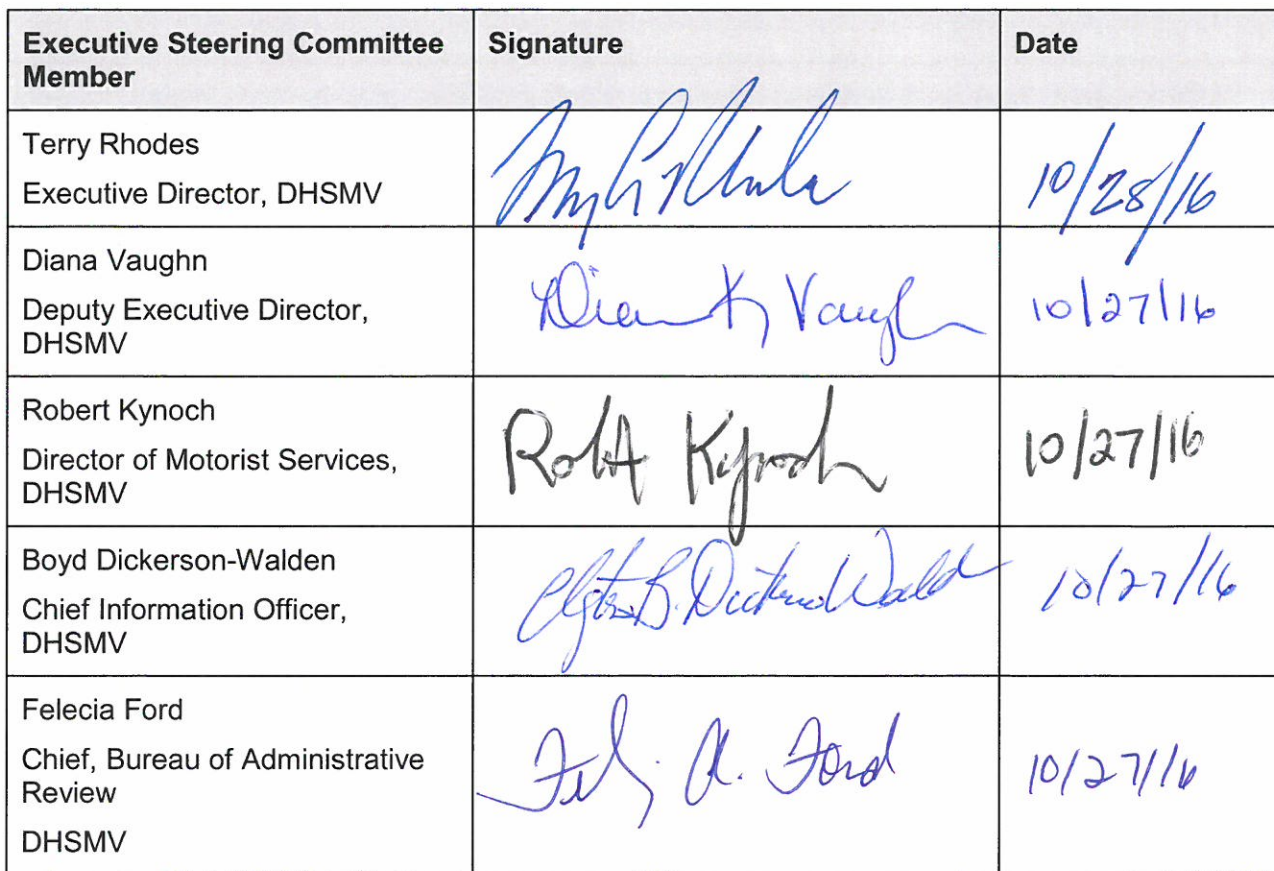 Executive Steering Committee Member Signature Date
Terry Rhodes
Executive Director, DHSMV
10/28/16
Diana Vaughn
Deputy Executive Director,
DHSMV
Diana K Vaughn
10/27/16
Robert Kynoch
Director of Motorist Services,
DHSMV
Robt Kynoch
10/27/16
Boyd Dickerson-Walden
Chief Information Officer,
DHSMV
10/27/16
Felecia Ford
Chief, Bureau of Administrative
Review
DHSMV
A. Ford
10/27/16